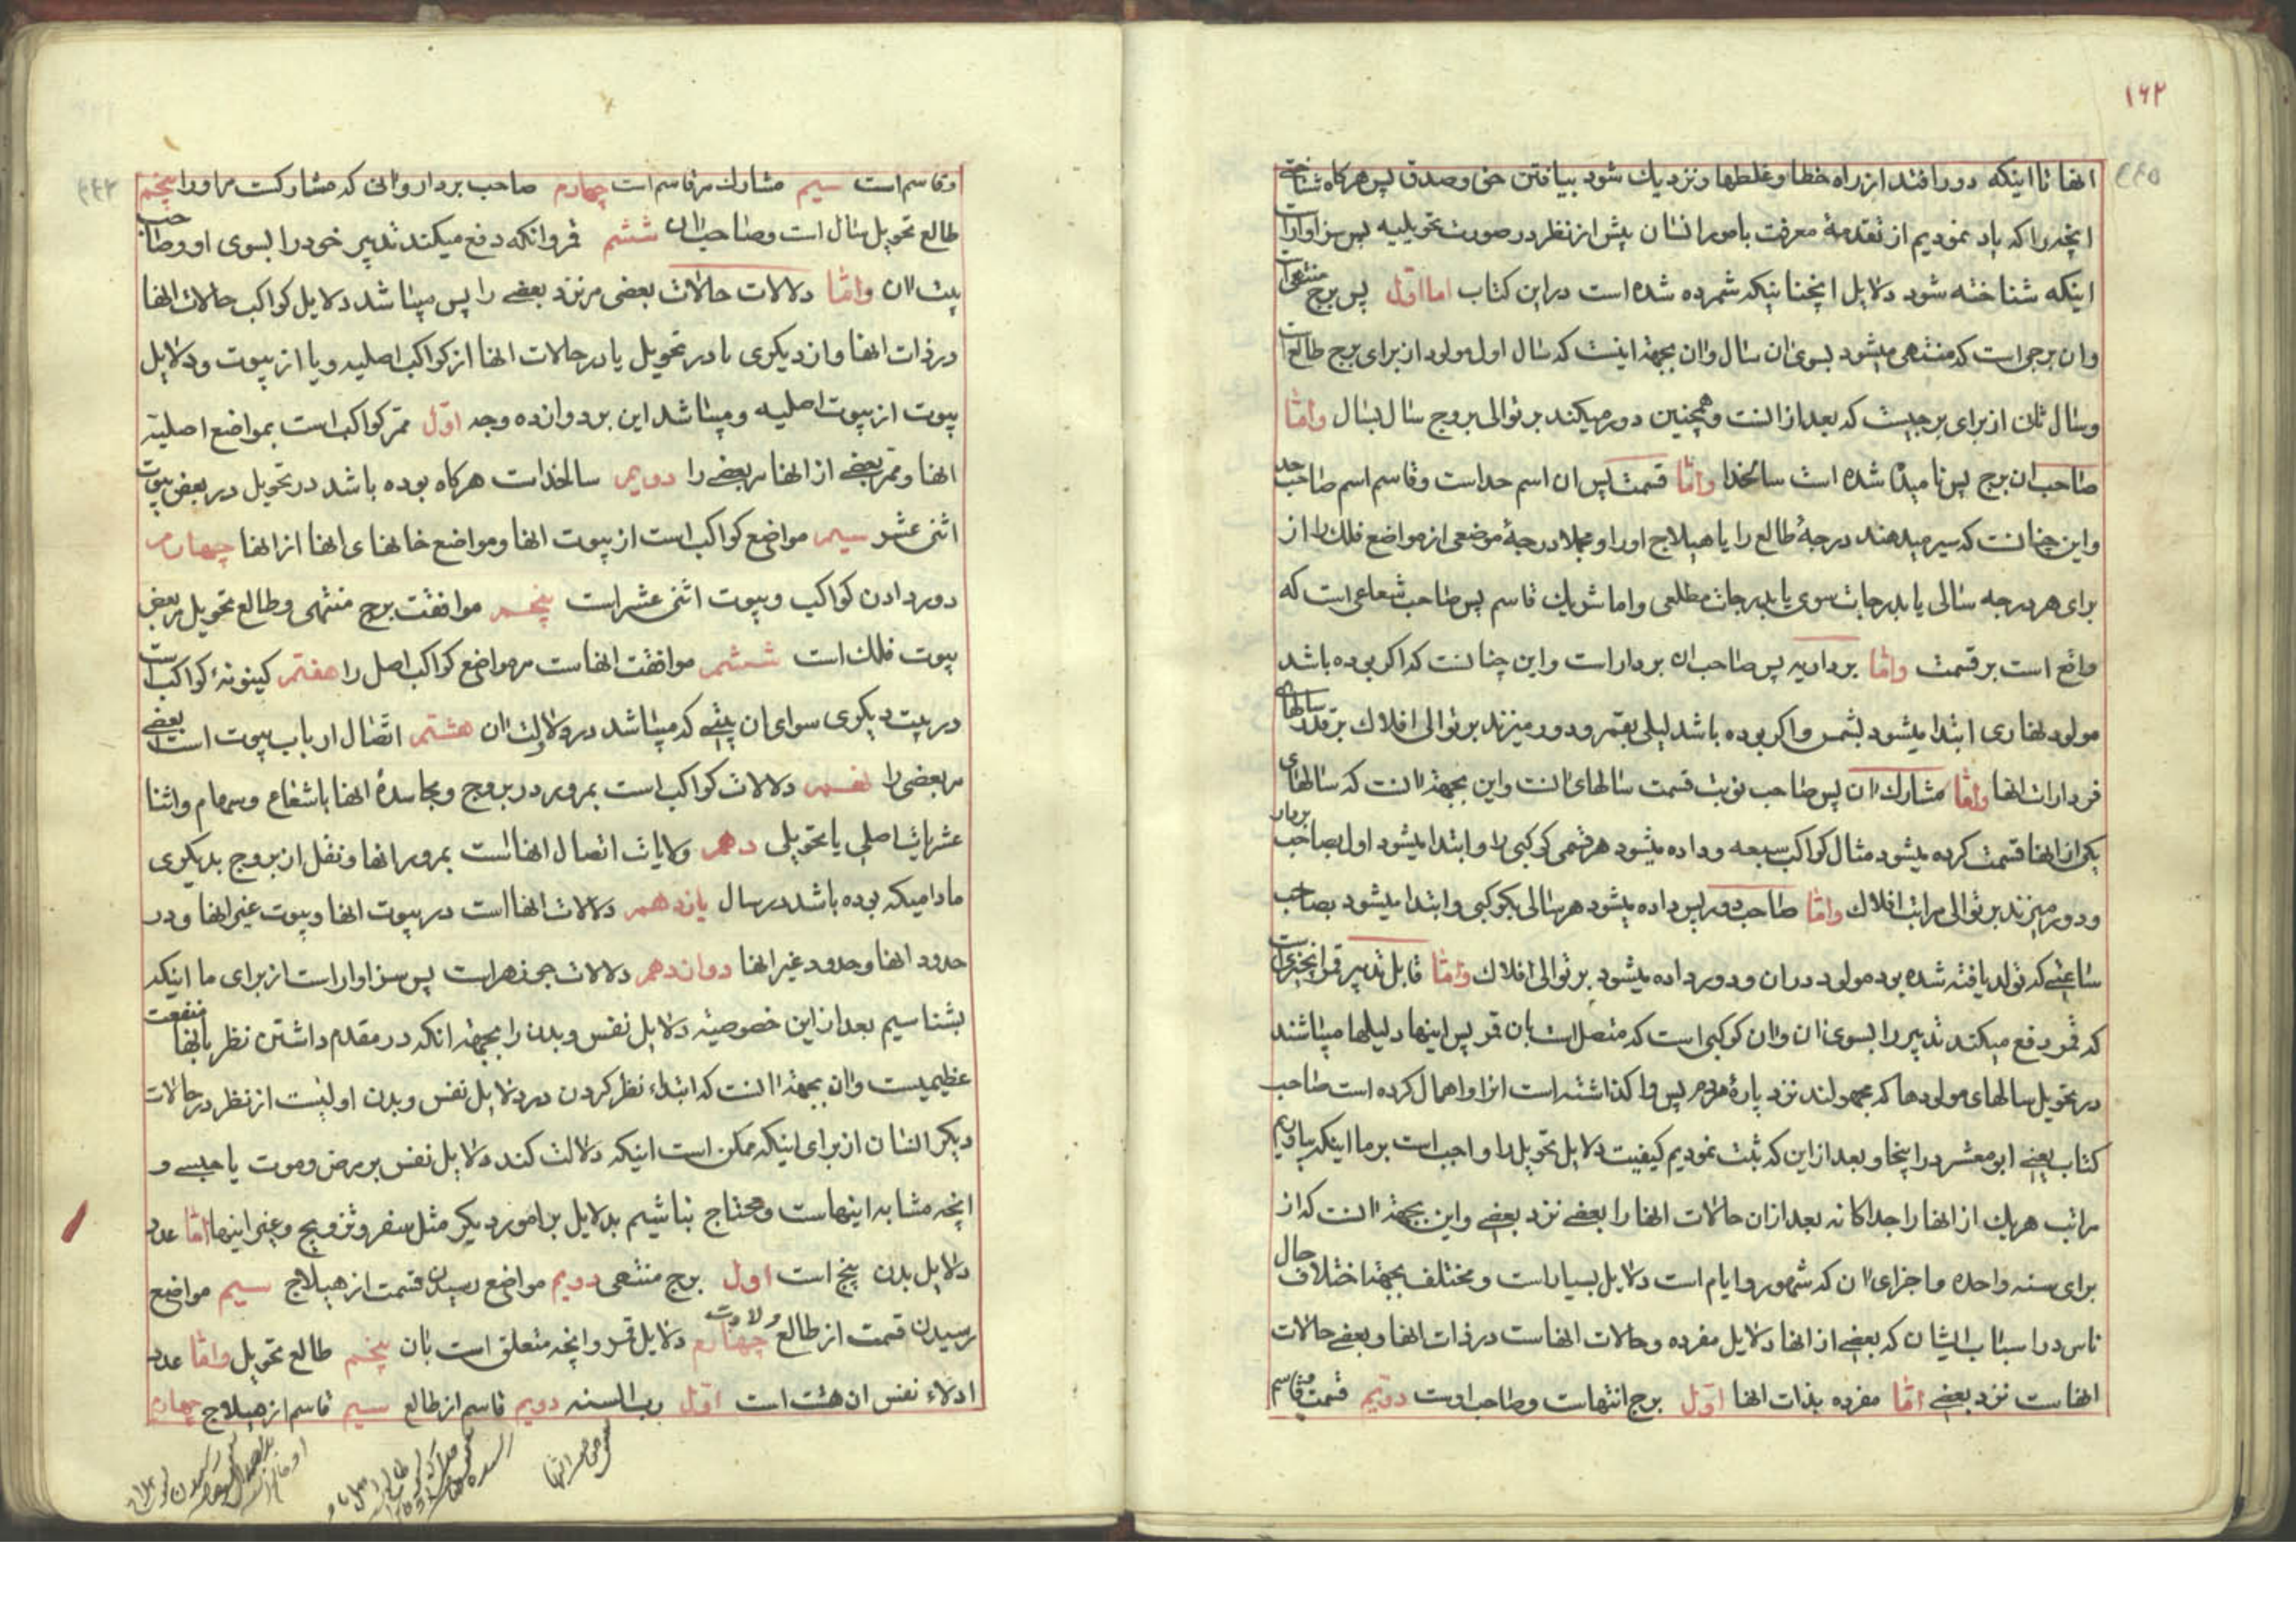 ۱۶۲
انها تا اینکه دور افتد از راه خطا و غلطها و نزدیك شود بیافتن حق و صدق پس هرکاه شناختی
انچه را که یاد نمودیم از تقدمهٔ معرفت بامور انسان پیش از نظر در صورت تحویلیه پس سزاوار است
اینکه شناخته شود دلایل انچنانیکه شمرده شده است در این کتاب اما اوّل پس برج منتهی است
و ان برجی است که منتهی میشود بسوی ان سال و ان بجهة اینست که سال اول مولود از برای برج طالع است
و سال ثانی از برای برجیست که بعد از انست و همچنین دور میکند بر توالی بروج سال بسال وامّا
صاحب ان برج پس نامیده شده است سالخدا وامّا قسمت پس ان اسم حد است و قاسم اسم صاحب حد
و این چنانست که سیر میدهند درجهٔ طالع را یا هیلاج او را و مجملا درجهٔ موضعی از مواضع فلك را از
برای هر درجه سالی یا بدرجات سوی یا بدرجات مطلعی و اما شریك قاسم پس صاحب شعاعی است که
واقع است بر قسمت وامّا برداریه پس صاحب ان بردار است و این چنانست که اکر بوده باشد
مولود نهاری ابتدا میشود بشمس و اکر بوده باشد لیلی بقمر و دور میزند بر توالی افلاك بر قدر سالهای
فردارات انها وامّا مشارك ان پس صاحب نوبت قسمت سالهای انست و این بجهة انست که سالهای
یك از انها قسمت کرده میشود مثال کواکب سبعه و داده میشود هر قسمی کوکبی را و ابتدا میشود اول بصاحب بردار
و دور میزند بر توالی مراتب افلاك وامّا صاحب دور پس داده میشود هر سالی بکوکبی و ابتدا میشود بصاحب
ساعتی که تولد یافته شده بود مولود در ان و دور داده میشود بر توالی افلاك وامّا قابل تدبیر قمر انچیزی است
که قمر دفع میکند تدبیر را بسوی ان و ان کوکبی است که متصل است بان قمر پس اینها دلیلها میباشند
در تحویل سالهای مولودها که مجهولند نزد پارهٔ مردم پس وا کذاشته است انرا و اهمال کرده است صاحب
کتاب یعنی ابو معشر در اینجا و بعد از این که ثبت نمودیم کیفیت دلایل تحویل را واجب است بر ما اینکه بیاوریم
مراتب هریك از انها را جداکانه بعد از ان حالات انها را بعضی نزد بعضی و این بجهة انست که از
برای سنه واحده و اجزای ان که شهور و ایام است دلایل بسیار است و مختلف بجهة اختلاف حال
ناس در اسباب ایشان که بعضی از انها دلایل مفرده و حالات انهاست در ذات انها و بعضی حالات
انهاست نزد بعضی امّا مفرده بذات انها اوّل برج انتهاست و صاحب اوست دوّیم قسمت و قاسم
و قاسم است سیم مشارك مر قاسم است چهارم صاحب بردار و انی که مشارکست مر او را پنجم
طالع تحویل سال است و صاحب ان ششم قمر و انکه دفع میکند تدبیر خود را بسوی او و صاحب
بیت ان وامّا دلالات حالات بعضی مر نزد بعضی را پس میباشد دلایل کواکب حالات انها
در ذات انها و از دیکری یا در تحویل یا در حالات انها از کواکب اصلیه و یا از بیوت و دلایل
بیوت از بیوت اصلیه و میباشد این بر دوازده وجه اوّل ممر کواکب است بمواضع اصلیّه
انها و ممر بعضی از انها مر بعضی را دویم سالخداست هرکاه بوده باشد در تحویل در بعض بیوت
اثنی عشر سیم مواضع کواکب است از بیوت انها و مواضع خانهای انها از انها چهارم
دور دادن کواکب و بیوت اثنی عشر است پنجم موافقت برج منتهی و طالع تحویل مر بعض
بیوت فلك است ششم موافقت انهاست مر مواضع کواکب اصل را هفتم کینونهٔ کواکب است
در بیت دیکری سوای ان بیتی که میباشد در دلالت ان هشتم اتصال ارباب بیوت است بعضی
مر بعضی را نهم دلالات کواکب است بمرور در بروج و مجاسدهٔ انها باشعاع و سهام و اثنا
عشریات اصلی یا تحویلی دهم ولایات اتصال انهااست بمرور انها و نقل از بروج بدیکری
مادامیکه بوده باشد در سال یازدهم دلالات انهااست در بیوت انها و بیوت غیر انها و در
حدود انها و حدود غیر انها دوازدهم دلالات جوزهر است پس سزاوار است از برای ما اینکه
بشناسیم بعد از این خصوصیّه دلایل نفس و بدن را بجهة انکه در مقدم داشتن نظر بانها منفعت
عظیمیست و ان بجهة انست که ابتداء نظر کردن در دلایل نفس و بدن اولیست از نظر در حالات
دیکر انسان از برای اینکه ممکن است اینکه دلالت کند دلایل نفس بر مرض و موت یا حبسی و
انچه مشابه اینهاست و محتاج نباشیم بدلایل بر امور دیکر مثل سفر و تزویج و غیر اینها امّا عدد
دلایل بدن پنج است اول برج منتهی دویم مواضع رسیدن قسمت از هیلاج سیم مواضع
رسیدن قسمت از طالع ولادت چهارم دلایل قمر و انچه متعلق است بان پنجم طالع تحویل وامّا عدد
ادلاء نفس ان هشت است اوّل رب السنه دویم قاسم از طالع سیم قاسم از هیلاج چهارم